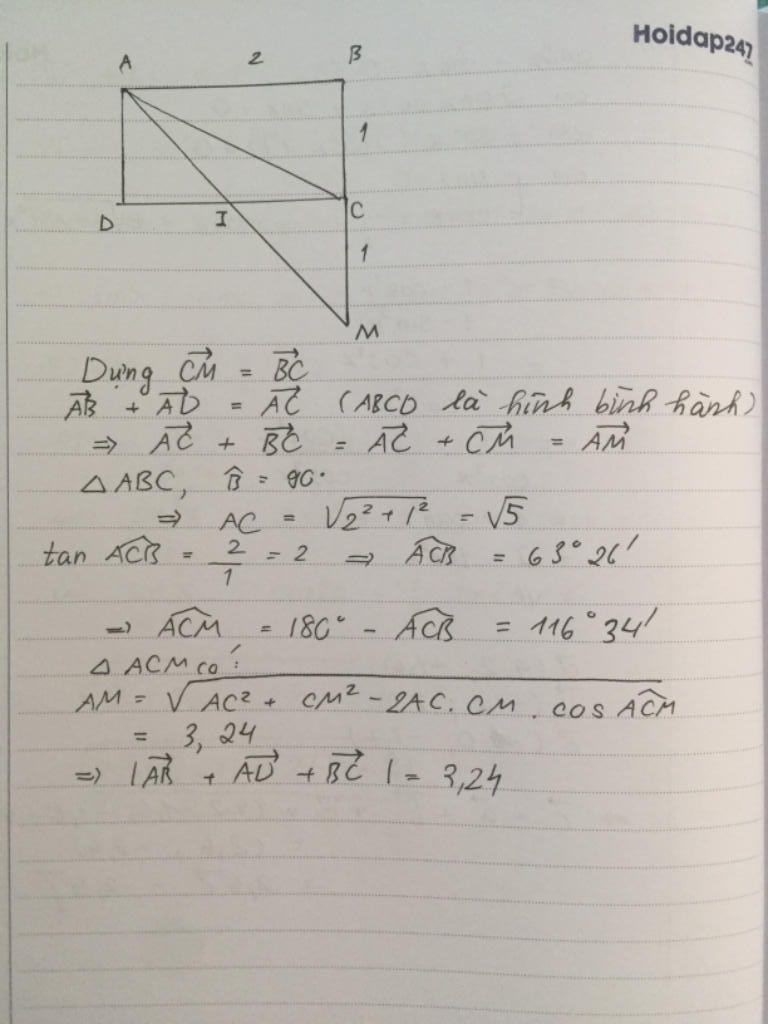 Hoidap247
A 2 B
1
D I C
1
M
Dựng $\overrightarrow{CM}$ = $\overrightarrow{BC}$
$\overrightarrow{AB}$ + $\overrightarrow{AD}$ = $\overrightarrow{AC}$ (ABCD là hình bình hành)
⇒ $\overrightarrow{AC}$ + $\overrightarrow{BC}$ = $\overrightarrow{AC}$ + $\overrightarrow{CM}$ = $\overrightarrow{AM}$
△ ABC, $\widehat{B}$ = 90°
⇒ AC = $\sqrt{2^2 + 1^2}$ = $\sqrt{5}$
tan $\widehat{ACB}$ = $\frac{2}{1}$ = 2 ⇒ $\widehat{ACB}$ = 63°26'
⇒ $\widehat{ACM}$ = 180° - $\widehat{ACB}$ = 116°34'
△ ACM có:
AM = $\sqrt{AC^2 + CM^2 - 2AC. CM. cos \widehat{ACM}}$
= 3,24
⇒ |$\overrightarrow{AB}$ + $\overrightarrow{AD}$ + $\overrightarrow{BC}$| = 3,24